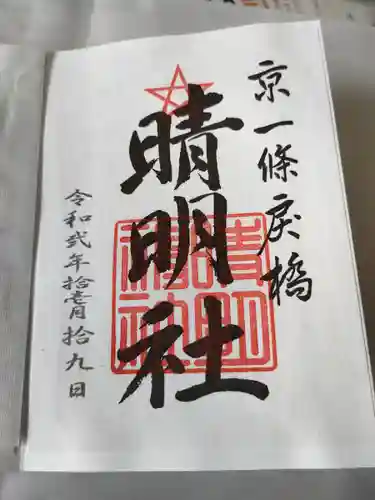 京一條戻橋
晴明社
晴明神社
令和弐年拾壱月拾九日